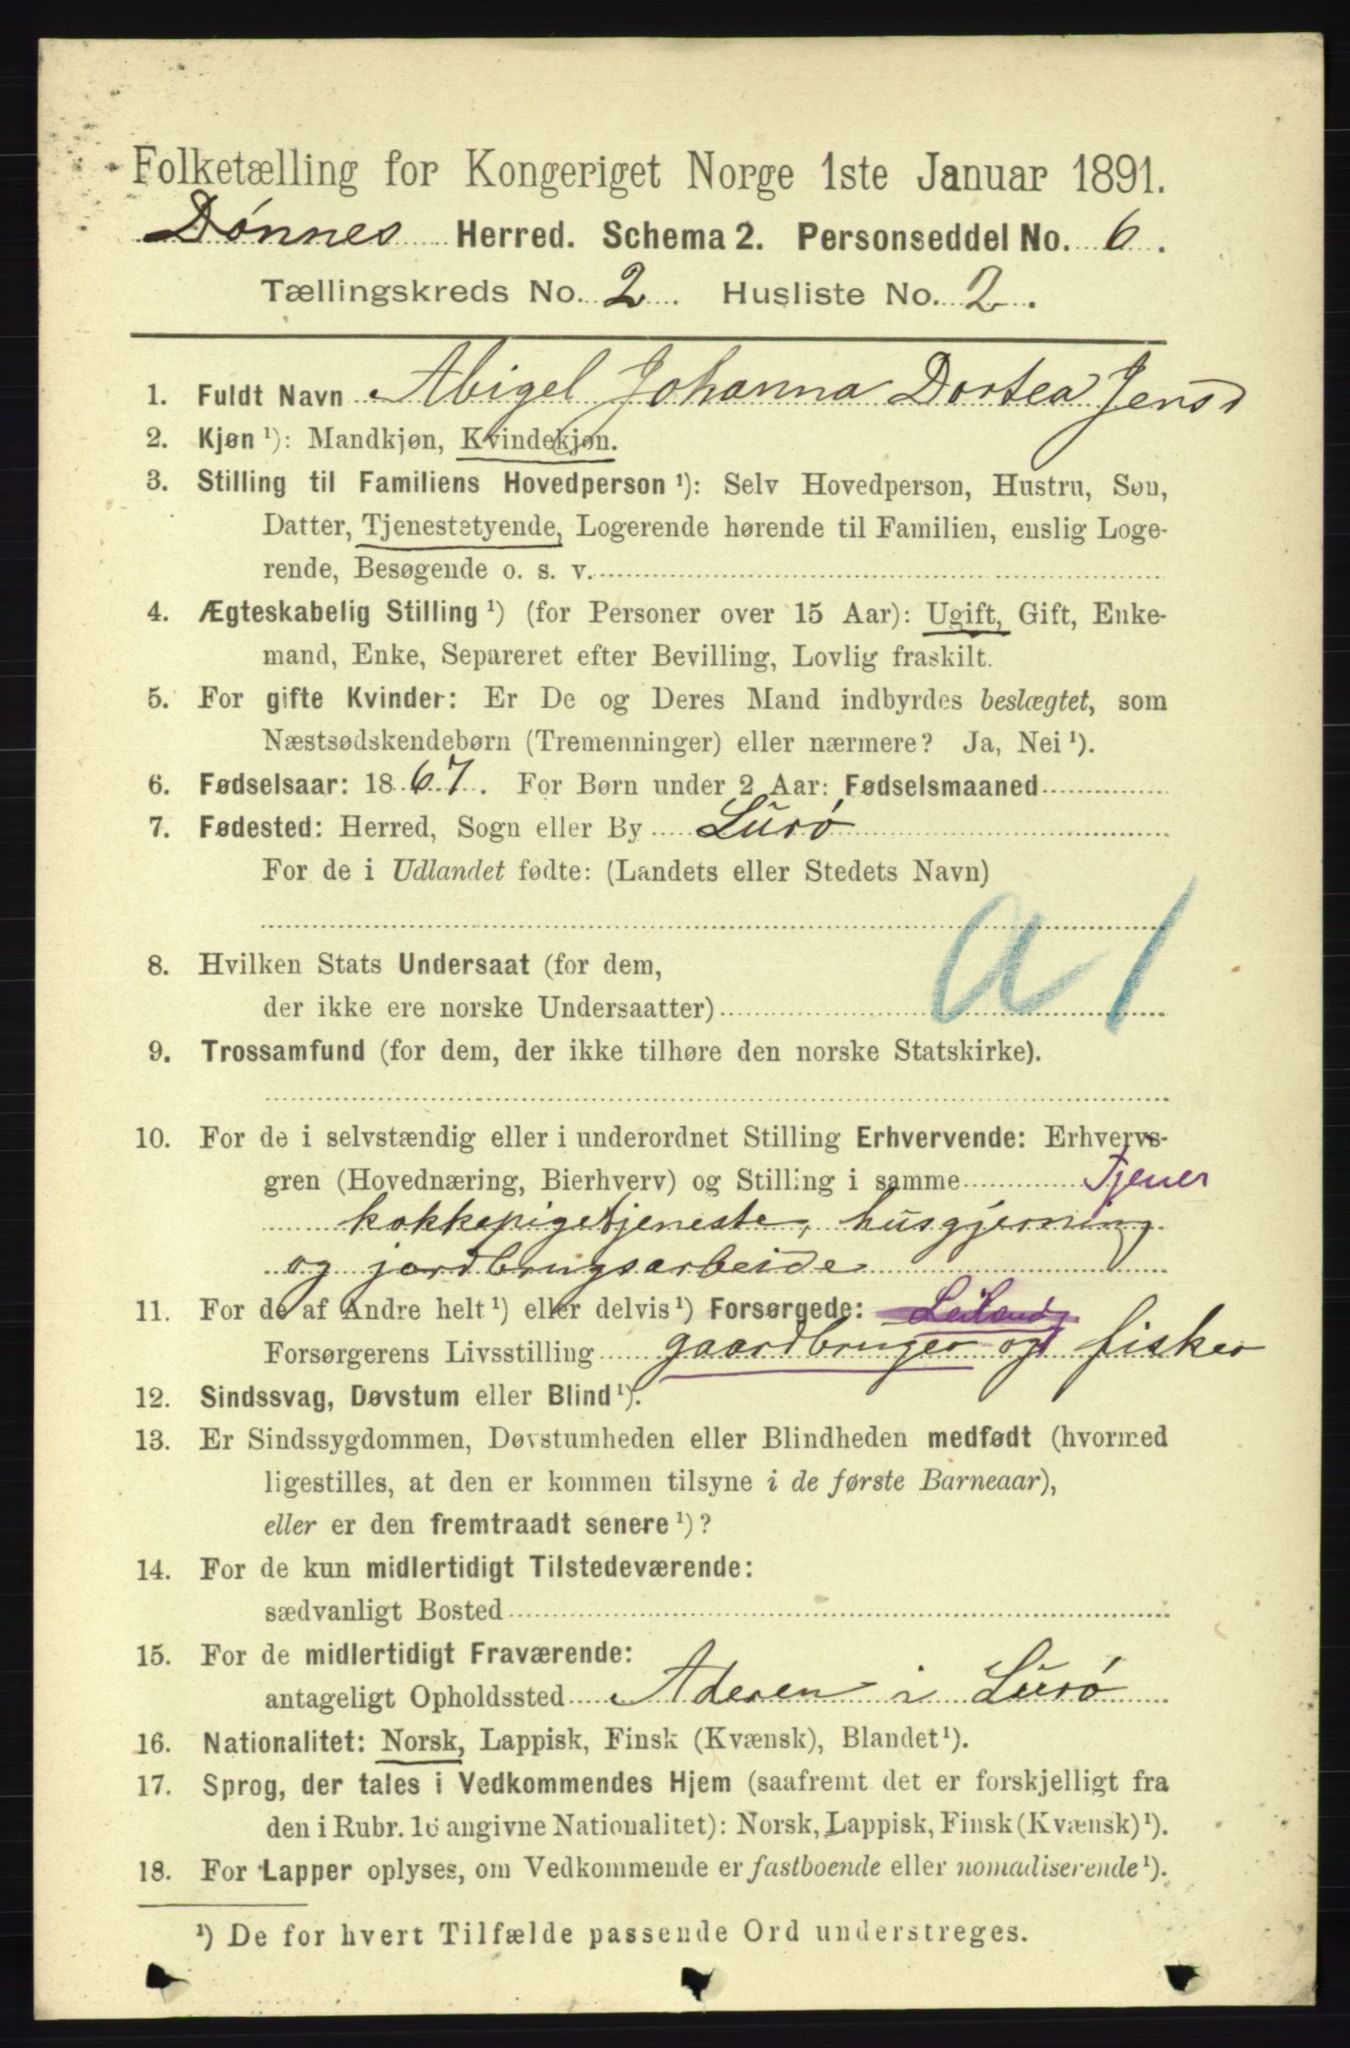 Folketælling for Kongeriget Norge 1ste Januar 1891.
Dønnes Herred. Schema 2. Personseddel No. 6.
Tællingskreds No. 2. Husliste No. 2.
1. Fuldt Navn Abigel Johanna Dortea Jensd
2. Kjøn ¹): Mandkjøn, Kvindekjøn.
3. Stilling til Familiens Hovedperson ¹): Selv Hovedperson, Hustru, Søn,
Datter, Tjenestetyende, Logerende hørende til Familien, enslig Loge-
rende, Besøgende o. s. v.
4. Ægteskabelig Stilling ¹) (for Personer over 15 Aar): Ugift, Gift, Enke-
mand, Enke, Separeret efter Bevilling, Lovlig fraskilt.
5. For gifte Kvinder: Er De og Deres Mand indbyrdes beslægtet, som
Næstsødskendebørn (Tremenninger) eller nærmere? Ja, Nei ¹).
6. Fødselsaar: 1867. For Børn under 2 Aar: Fødselsmaaned
7. Fødested: Herred, Sogn eller By Lurø
For de i Udlandet fødte: (Landets eller Stedets Navn)
a 1
8. Hvilken Stats Undersaat (for dem,
der ikke ere norske Undersaatter)
9. Trossamfund (for dem, der ikke tilhøre den norske Statskirke).
10. For de i selvstændig eller i underordnet Stilling Erhvervende: Erhvervs-
gren (Hovednæring, Bierhverv) og Stilling i samme Tjener
kokkepigetjeneste, husgjerning
og jordbrugsarbeide
11. For de af Andre helt ¹) eller delvis ¹) Forsørgede: Leilend.
Forsørgerens Livsstilling gaardbruger og fisker
12. Sindssvag, Døvstum eller Blind ¹).
13. Er Sindssygdommen, Døvstumheden eller Blindheden medfødt (hvormed
ligestilles, at den er kommen tilsyne i de første Barneaar),
eller er den fremtraadt senere ¹)?
14. For de kun midlertidigt Tilstedeværende:
sædvanligt Bosted
15. For de midlertidigt Fraværende:
antageligt Opholdssted Aderen i Lurø
16. Nationalitet: Norsk, Lappisk, Finsk (Kvænsk), Blandet ¹).
17. Sprog, der tales i Vedkommendes Hjem (saafremt det er forskjelligt fra
den i Rubr. 16 angivne Nationalitet): Norsk, Lappisk, Finsk (Kvænsk) ¹).
18. For Lapper oplyses, om Vedkommende er fastboende eller nomadiserende ¹).
¹) De for hvert Tilfælde passende Ord understreges.